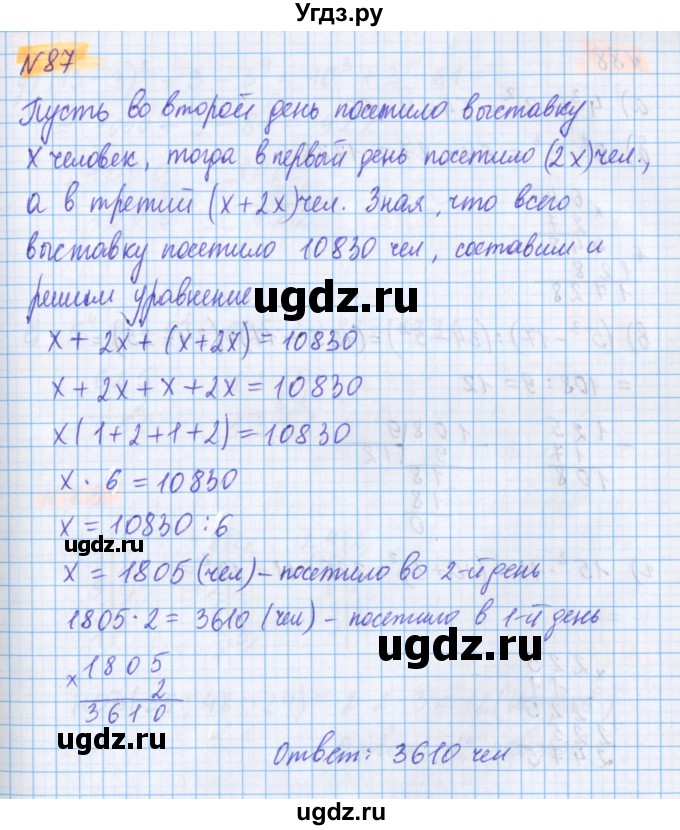 Угдз.ру
№87
Пусть во второй день посетило выставку
x человек, тогда в первый день посетило (2x) чел.,
а в третий (x+2x) чел. Зная, что всего
выставку посетило 10830 чел, составим и
решим уравнение
ugdz.ru
x + 2x + (x+2x) = 10830
x + 2x + x + 2x = 10830
x(1+2+1+2) = 10830
x · 6 = 10830
x = 10830 : 6
ugdz.ru
ugdz.ru
x = 1805 (чел) – посетило во 2-й день
1805 · 2 = 3610 (чел) – посетило в 1-й день
× 1805
2
3610
ugdz.ru
ugdz.ru
Ответ: 3610 чел
ugdz.ru